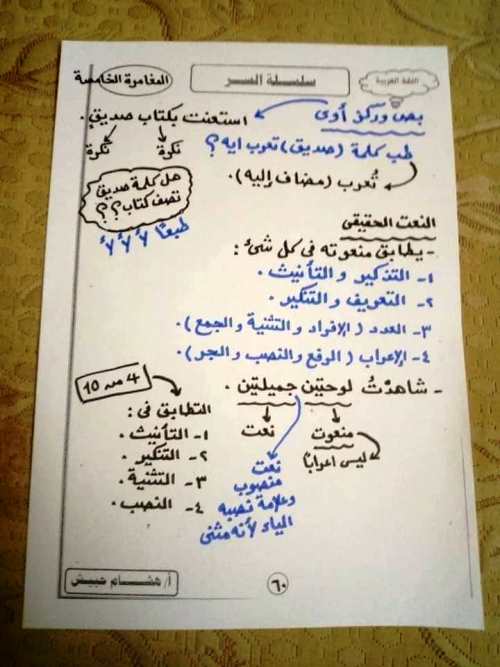 اللغة العربية
سلسلة السر
المغامرة الخامسة
بص وركز أوى
استعنت بكتاب صديقٍ.
نكرة نكرة
طب كلمة (صديق) تعرب ايه؟
تُعرب (مضاف إليه).
هل كلمة صديق
تصف كتاب؟؟
طبعًا لأ لأ لأ
النعت الحقيقى
- يطابق منعوته فى كل شئ:
١- التذكير والتأنيث.
٢- التعريف والتنكير.
٣- العدد (الإفراد والتثنية والجمع).
٤- الإعراب (الرفع والنصب والجر).
- شاهدْتُ لوحتين جميلتين.
منعوت نعت
ليس اعرابًا
نعت
منصوب
وعلامة نصبه
الياء لأنه مثنى
4 من 10
التطابق فى:
١- التأنيث.
٢- التنكير.
٣- التثنية.
٤- النصب.
٦٠
أ/ هشام حبيش